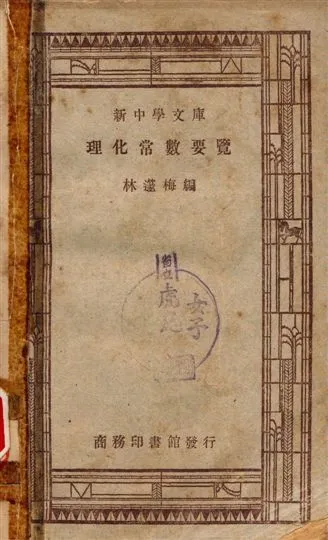 新中學文庫
理化常數要覽
林蓬梅編
虎
女子
商務印書館發行